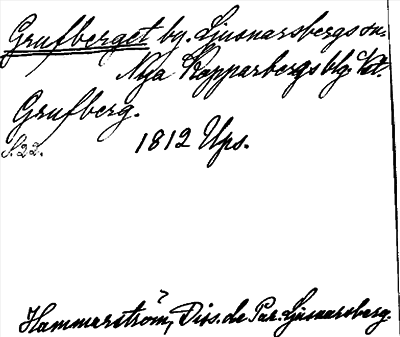 Grufberget bg. Ljusnarsbergs sn.
Nya Kopparbergs blg.
Grufberg.
S. 22. 1812 Ups.
Hammarström, Diss. de Par. Ljusnarsberg.